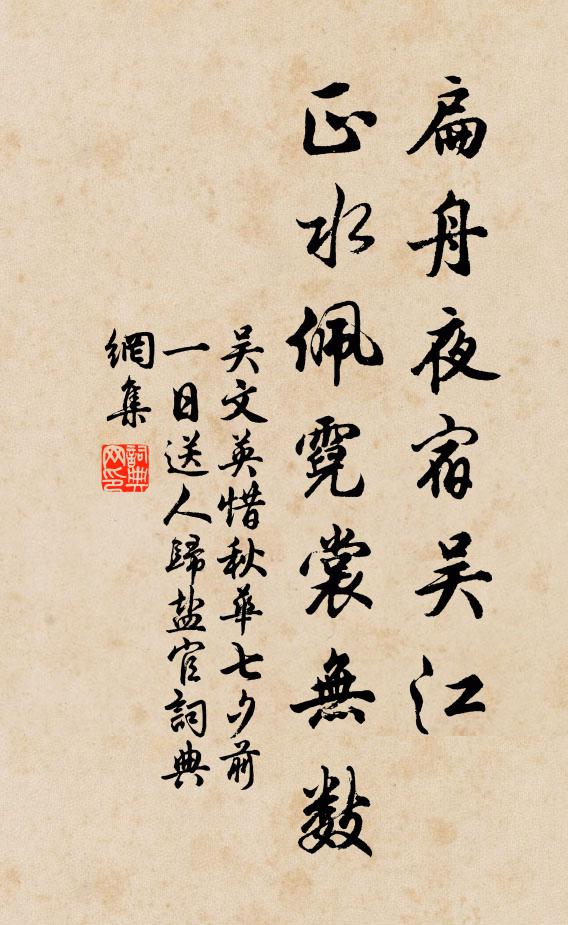 扁舟夜宿吴江
正水佩霓裳無數
吴文英惜秋華七夕前
一日送人歸盐官詞典
網集
詞典
网印